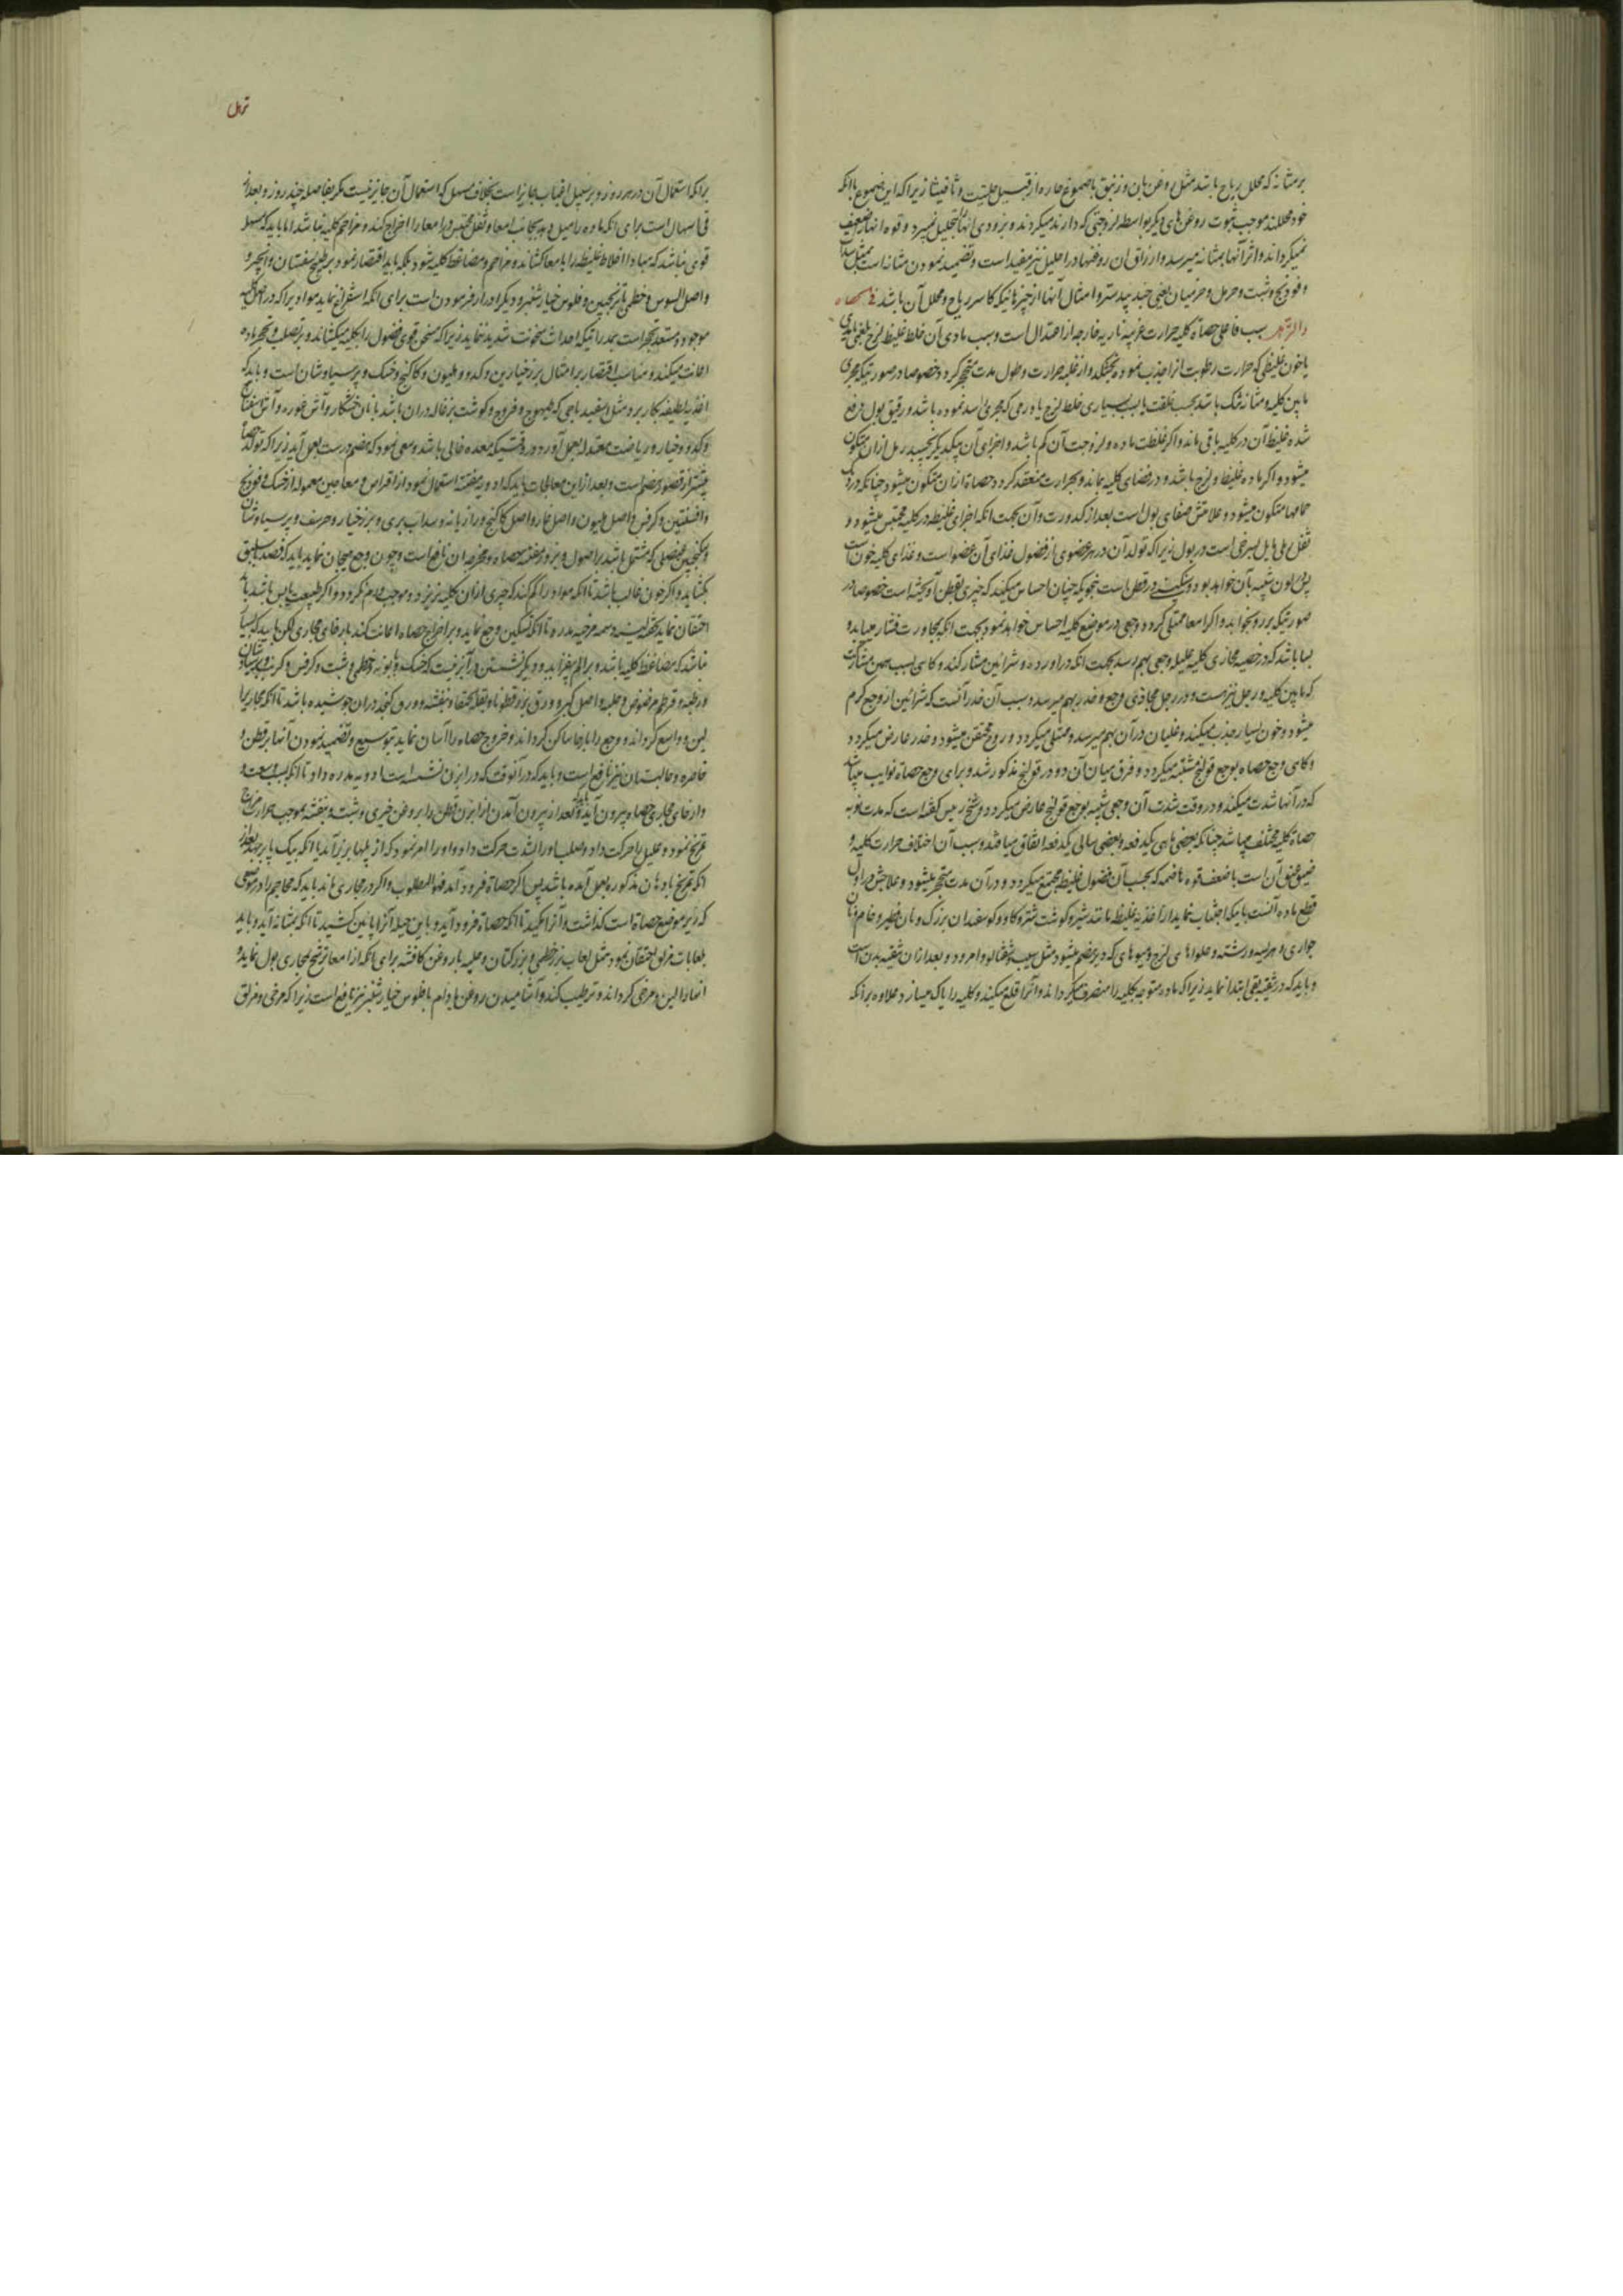 بر مثانه که محلل ریاح باشد مثل دهن بان و زنبق با صموغ حاره از قبیل حلتیت و ثافیثا زیرا که این صموغ با آنکه
خود محللند موجب ثبوت روغن‌های دیگر بواسطه لزوجتی که دارند میگردند و بزودی آنها بتحلیل نمیرود و قوه آنها ضعیف
نمیگرداند و اثر آنها بمثانه میرسد و ازراق این روغنها در احلیل نیز مفید است و تضمید نمودن مثانه است بمثل سداب
و فودنج و شبت و حرمل و خرمیان یعنی جند بیدستر و امثال آنها از چیزهائیکه کاسر ریاح و محلل آن باشد فی الحصاه
والرمل سبب فاعلی حصاة کلیه حرارت غریبه ناریه خارجه از اعتدال است و سبب مادی آن خلط غلیظ لزج بلغمی
یا خون غلیظی که حرارت رطوبت از او جذب نموده بخشکد و از غلبه حرارت و طول مدت متحجر گردد خصوصا در صورتیکه مجری
مابین کلیه و مثانه تنگ باشد بحسب خلقت یا بسبب بسیاری خلط لزج یا ورمی که مجری را سد نموده باشد و رقیق بول دفع
شده غلیظ آن در کلیه باقی ماند و اگر غلظت ماده و لزوجت آن کم باشد و اجزای آن بیکدیگر نچسبد رمل از آن متکون
میشود و اگر ماده غلیظ و لزج باشد و در فضای کلیه بماند و بحرارت منعقد گردد حصاة از آن متکون میشود چنانکه در دیک
حمامها متکون میشود و علامتش صفای بول است بعد از کدورت و آن بجهت آنکه اجزای غلیظه در کلیه محتبس میشود و
ثفل رملی مایل بسرخی است در بول زیرا که تولد آن در هر عضوی از فضول غذای آن عضو است و غذای کلیه خون است
پس لون شبیه بآن خواهد بود و سنگینی در قطن است بنحویکه چنان احساس میکند که چیزی بقطن آویخته است خصوصا در
صورتیکه بر رو بخوابد و اگر امعا ممتلی گردد وجعی در موضع کلیه احساس خواهد نمود بجهت آنکه بمجاورت فشار میابد و
بسا باشد که در خصیه محاذی کلیه علیله وجعی بهم رسد بجهت آنکه در اورده و شرائین مشارکند و گاهی بسبب همین مشارکت
که مابین کلیه و رجل نیز هست در رجل محاذی وجع و خدر بهم میرسد و سبب آن خدر آنست که شرائین از وجع گرم
میشود و خون بسیار جذب میکند و غلیان در آن بهم میرسد و ممتلی میگردد و روح مختنق میشود و خدر عارض میگردد
و گاهی وجع حصاه بوجع قولنج مشتبه میگردد و فرق میان آن دو در قولنج مذکور شد و برای وجع حصاة نوایب میباشد
که در آنها شدت میکند و در وقت شدت آن وجعی شبیه بوجع قولنج عارض میگردد و شیخ رئیس گفته است که مدت نوبه
حصاة کلیه مختلف میباشد چنانکه بعضی ماهی یکدفعه و بعضی سالی یکدفعه اتفاق میافتد و سبب آن اختلاف حرارت کلیه و
ضیق عنق آن است با ضعف قوه هاضمه که بحسب آن فضول غلیظ مجتمع میگردد و در آن مدت متحجر میشود و علاجش در اول
قطع ماده آنست باینکه اجتناب نماید از اغذیه غلیظه مانند شیر و گوشت شتر و گاو و گوسفندان بزرگ و نان فطیر و خام و نان
حواری و هریسه و رشته و حلواهای لزج و میوه‌های که دیر هضم میشود مثل سیب و شفتالو و امرود و بعد از آن تنقیه بدن است
و باید که در تنقیه بقی ابتدا نماید زیرا که ماده متوجه بکلیه را منصرف میگرداند و آنرا قلع میکند و کلیه را پاک میسازد علاوه بر آنکه
رمل
بر آنکه استعمال آن در هر روز و بر سبیل اغباب جایز است بخلاف مسهل که استعمال آن جایز نیست مگر بفاصله چند روز و بعد از
قی اسهال است برای آنکه ماده را میل دهد بجانب امعا و ثفل محتبس در امعا را اخراج کند و مزاحم کلیه نباشد اما باید که مسهل
قوی نباشد که مبادا اخلاط غلیظه را بامعا کشاند و مزاحم و مضاغط کلیه شود بلکه باید اقتصار نمود بر طبیخ سفستان و انجیر و
واصل السوس و خطمی با ترنجبین و فلوس خیارشنبر و دیگر ادرار فرمودن است برای آنکه استفراغ نماید موادی را که در اصل کلیه
موجود و مستعد تحجر است بمدراتیکه احداث سخونت شدید ننماید زیرا که مسخن قوی فضول را بکلیه میکشاند و بر تصلب و تحجر ماده
اعانت میکند و مناسب اقتصار بر امثال بزر خیارین و کدو و هلیون و کاکنج و خسک و پرسیاوشان است و باید که
اغذیه لطیفه بکار برد مثل سفیدباجی که طیهوج و فروج و گوشت بزغاله در آن باشد با نان خشکار و آش غوره و آش اسفناج
و کدو و خیار و ریاضت معتدله بعمل آورد در وقتیکه معده خالی باشد و سعی نمود که هضم درست بعمل آید زیرا که تولد حصاة
بیشتر از قصور هضم است و بعد از این معالجات باید که ادویه مفتته استعمال نمود از اقراص و معاجین معموله از خسک و فودنج
و افسنتین و کرفس و اصل هلیون و اصل غار و اصل کاکنج و رازیانه و سداب بری و بزر خیار و حرشف و پرسیاوشان
و سکنجبین عنصلی که مشتمل باشد بر اصول و بزور مفتته حصاه و مخرجه آن نافع است و چون وجع هیجان نماید باید که فصد باسلیق
بگشاید و اگر خون غالب باشد تا آنکه مواد را کم کند که چیزی از آن بکلیه نریزد و موجب ورم نگردد و اگر طبیعت یابس باشد باید
احتقان نماید بحقنه لینه دسمه مرخیه مدره تا آنکه تسکین وجع نماید و بر اخراج حصاه اعانت کند بارخای مجاری لکن باید که بسیار
نباشد که مضاغط کلیه باشد و بر الم بیفزاید و دیگر نشستن در آبزنیست که خسک و بابونه و خطمی و شبت و کرفس و کرنب و پرسیاوشان
و رطبه و قرطم مرضوض و حلبه و اصل کبر و ورق بزرقطونا و بقلة الحمقا و بنفشه و ورق کنجد در آن جوشیده باشد تا آنکه مجاری را
لین و واسع گرداند و وجع را بارخا ساکن گرداند و خروج حصاه را آسان نماید بتوسیع و تضمید نمودن آنها بر قطن و
خاصره و حالبتان نیز نافع است و باید که در آنوقت که در ابزن نشسته است ادویه مدره داد تا آنکه بسبب وسعت
و ارخای مجاری حصاه بیرون آید و بعد از بیرون آمدن از ابزن قطن را بروغن خیری و شبت و بنفشه بموجب حرارت مزاج
تمریخ نمود و علیل را حرکت داد و صلب او را بشدت حرکت داد و او را امر نمود که از پلها بزیر آید یا آنکه بیک پا بر جهد بعد از
آنکه تمریخ بادهان مذکوره بعمل آمده باشد پس اگر حصاة فرود آمد فهو المطلوب و اگر در مجاری ماند باید که محاجم را در موضعی
که زیر موضع حصاة است گذاشت و آنرا مکید تا آنکه حصاة فرود آید و باین حیله آنرا پائین کشید تا آنکه بمثانه آید و باید
بلعابات مزلق احتقان نمود مثل لعاب بزر خطمی و بزرکتان و حلبه با روغن کافشه برای آنکه از امعا ترشح بمجاری بول نماید و
آنها را لین و مرخی گرداند و ترطیب کند و آشامیدن روغن بادام با فلوس خیارشنبر نیز نافع است زیرا که مرخی و مزلق